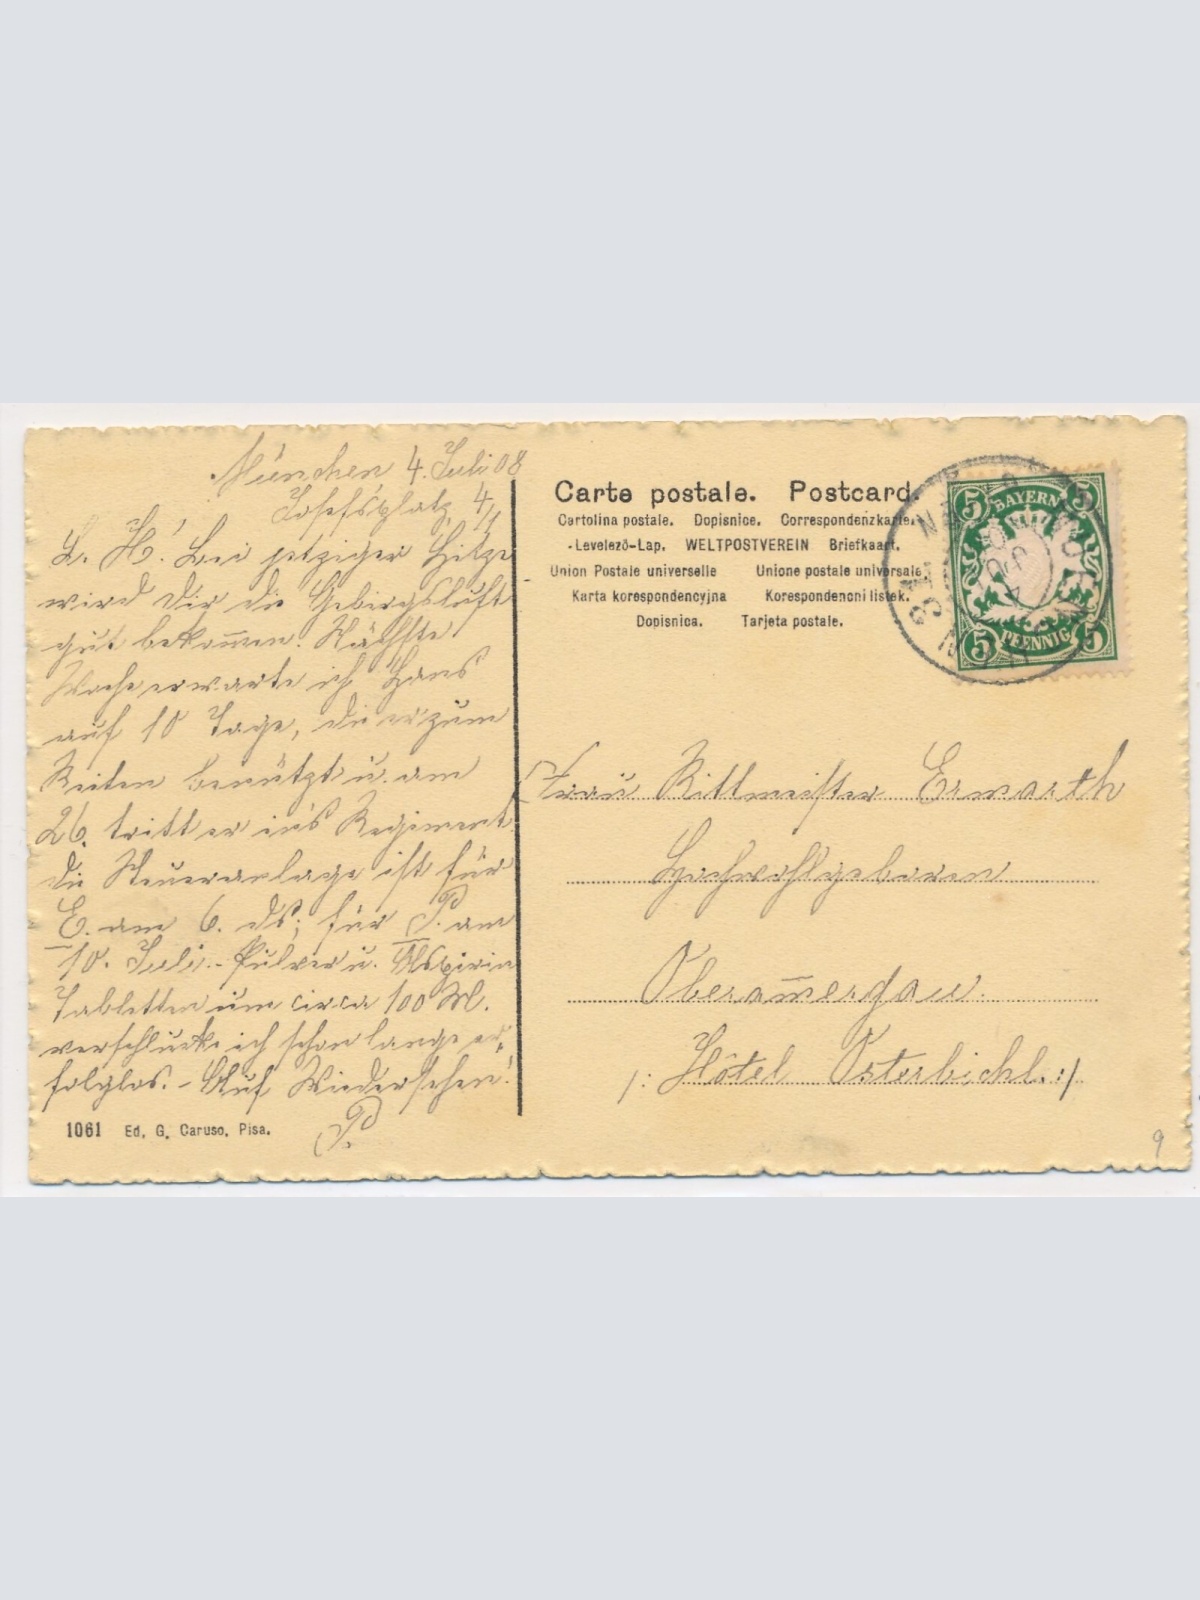 München 4. Juli 08
Josefsplatz 4/1
L. H! Bei jetziger Hitze
wird dir die Gebirgsluft
gut bekom̅en. Nächste
Woche erwarte ich Hans
auf 10 Tage, die er zum
Reiten benützt u. am
26. tritt er in's Regiment.
die Steueranlage ist für
E. am 6. ds; für P. am
10. Juli.- Pulver u. Aspirin
Tabletten um circa 100 M.
verschluckte ich schon lange er,
folglos. - Auf Wiedersehen!
P.
1061 Ed. G. Caruso, Pisa.
Carte postale. Postcard.
Cartolina postale. Dopisnice. Correspondenzkarte.
-Levelező-Lap. WELTPOSTVEREIN Briefkaart.
Union Postale universelle Unione postale universale
Karta korespondencyjna Korespondencni listek.
Dopisnica. Tarjeta postale.
5 BAYERN 5
5 PFENNIG 5
Frau Rittmeister Ermarth
Hochwohlgeboren
Oberam̅ergau.
/: Hôtel Osterbichl. :/
9